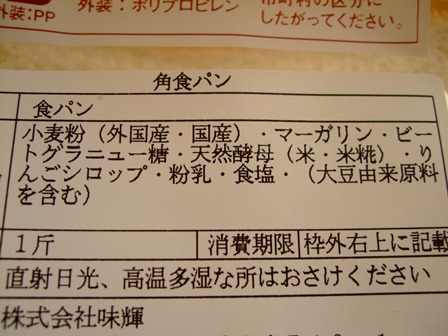 外装:PP
外装:ポリプロピレン
市町村の区分に
したがってください。
角食パン
食パン
小麦粉（外国産・国産）・マーガリン・ビー
トグラニュー糖・天然酵母（米・米糀）・り
んごシロップ・粉乳・食塩・（大豆由来原料
を含む）
1斤 消費期限 枠外右上に記載
直射日光、高温多湿な所はおさけください
株式会社味輝